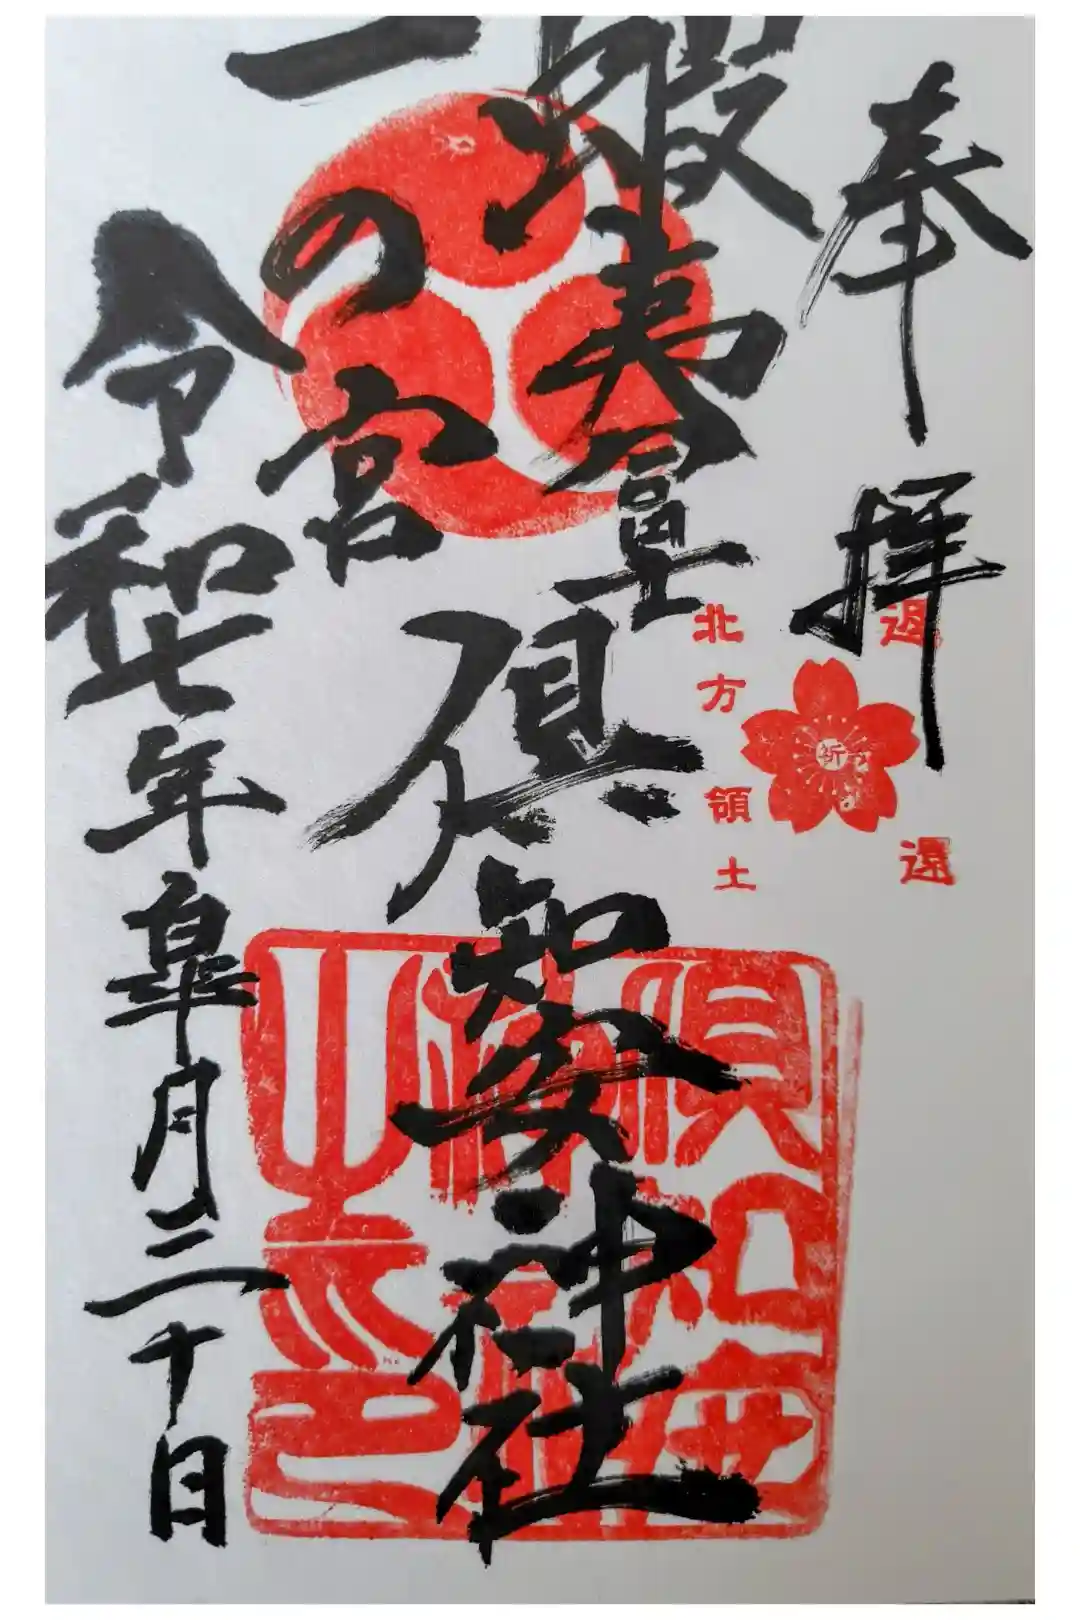 奉拝
返還
祈
北方領土
蝦夷富士
一の宮
倶知安神社
倶知安
神社
之印
令和七年皐月三十日